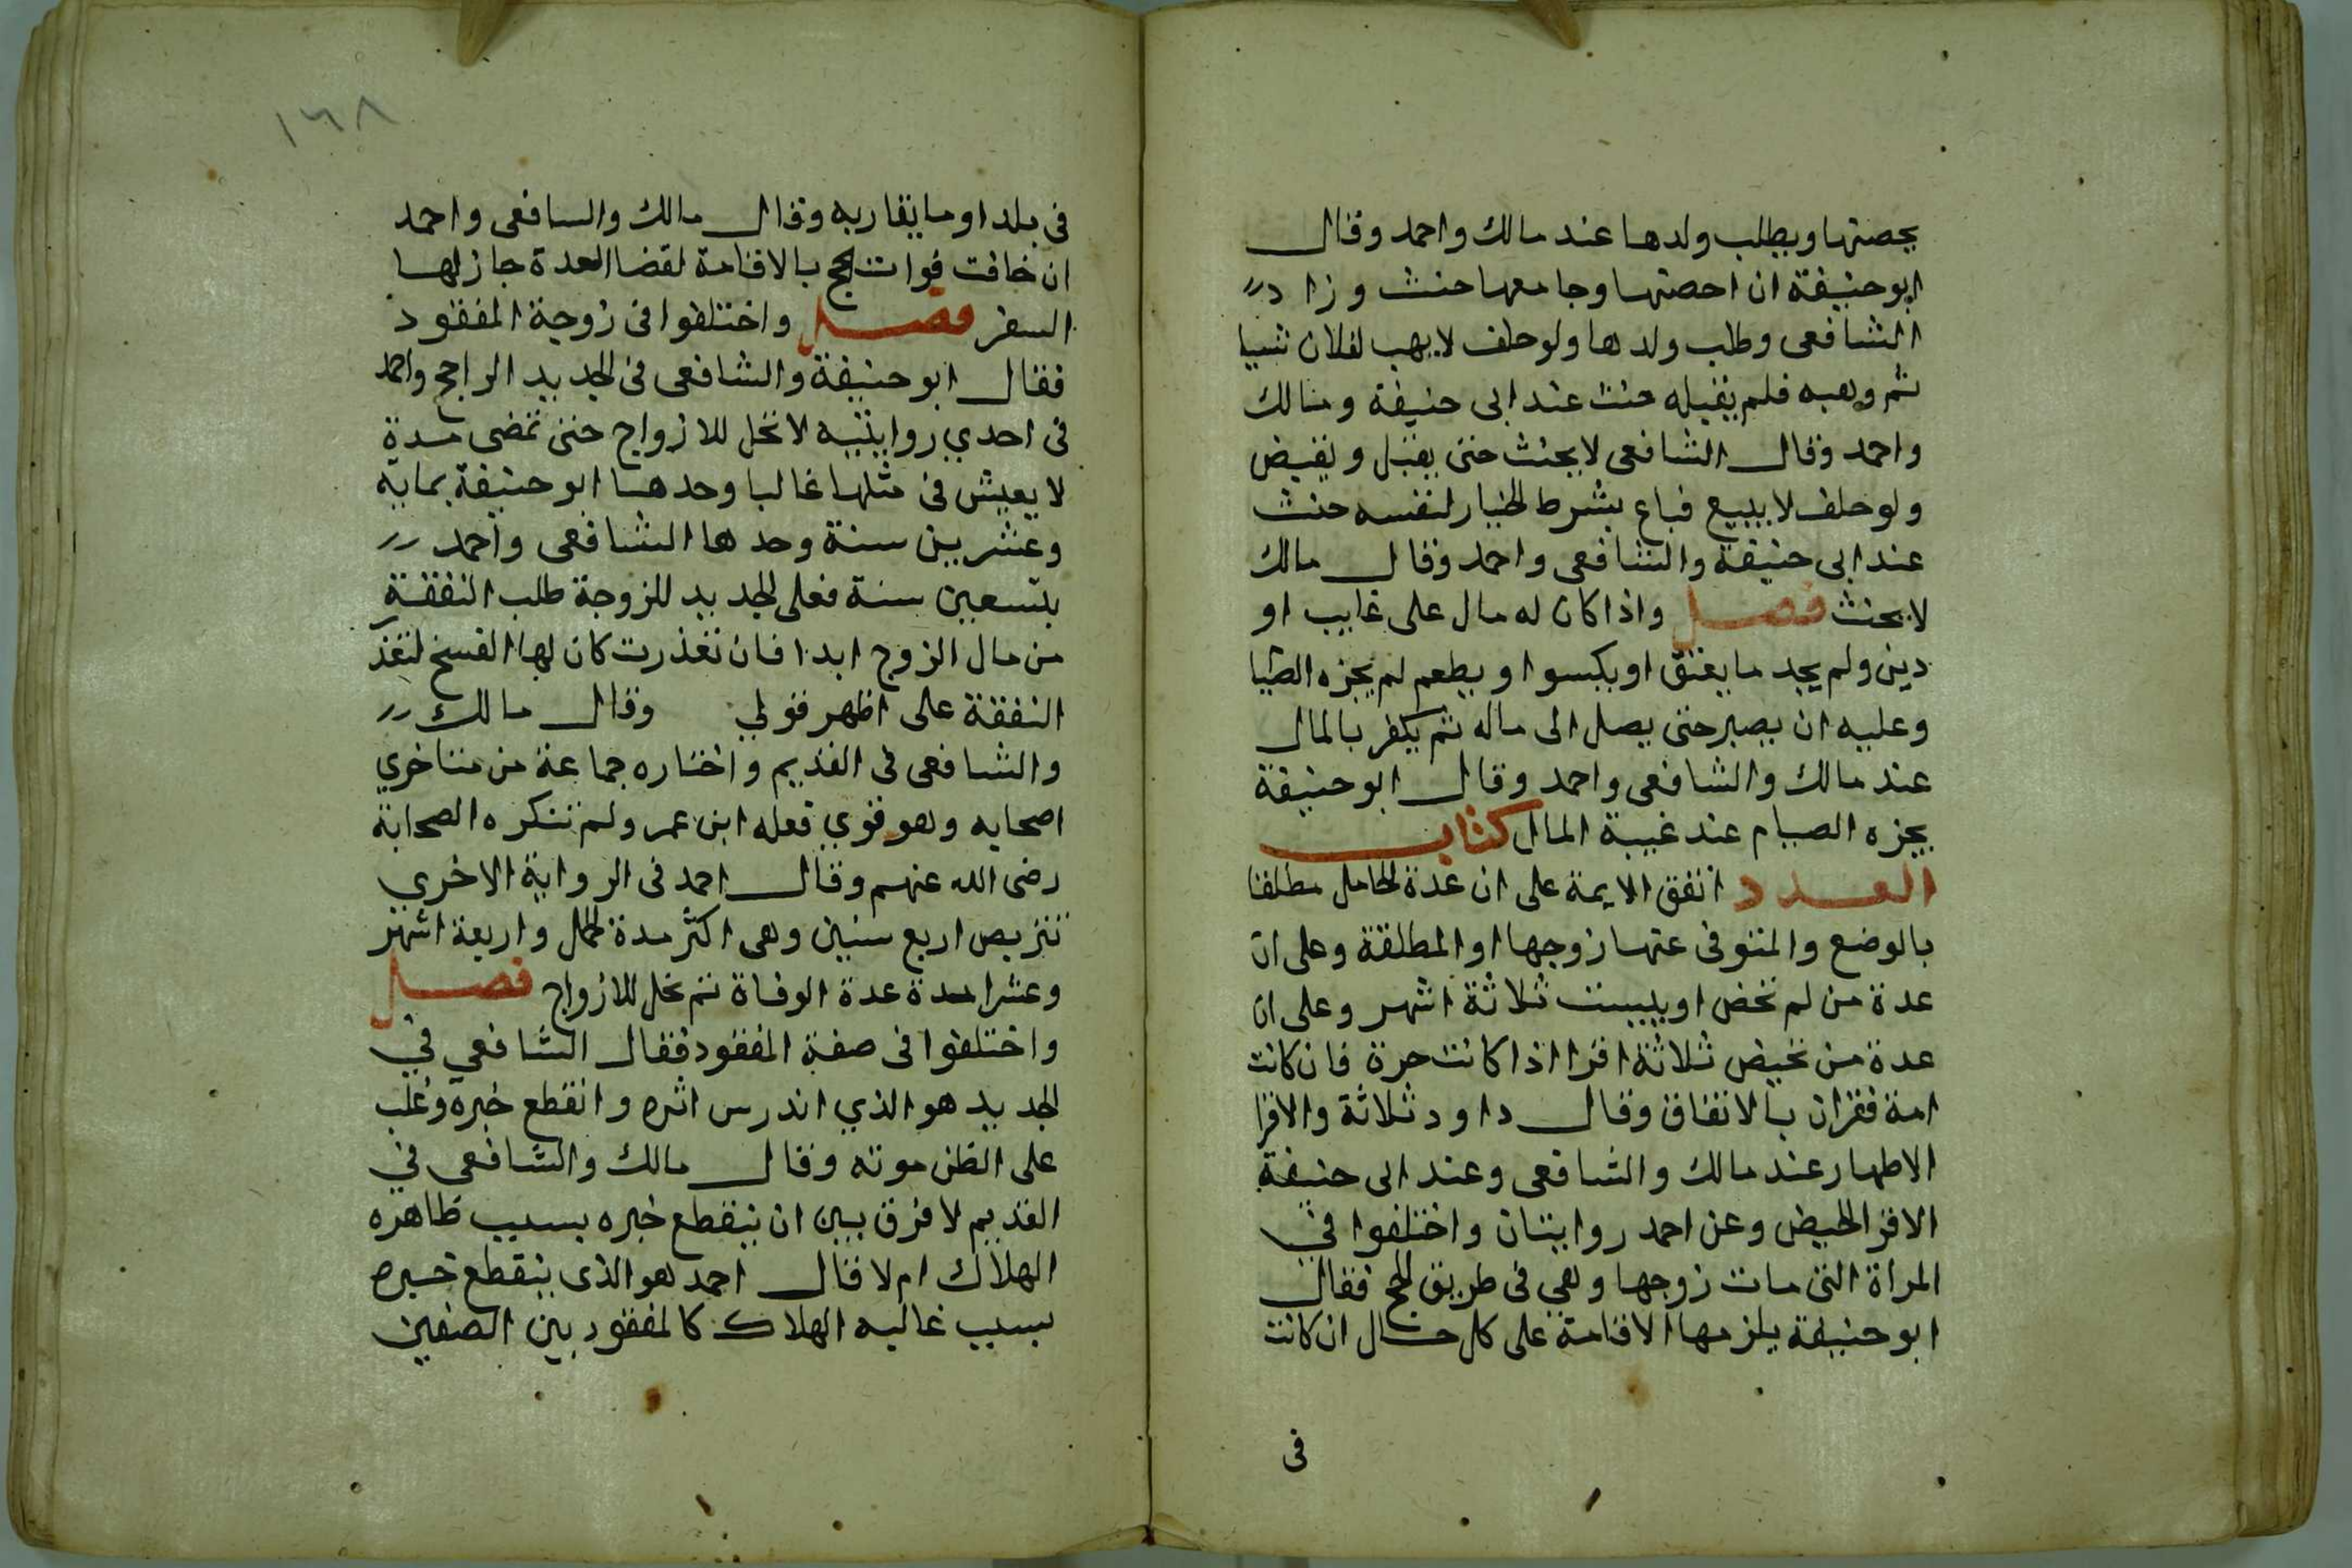 يحصنها ويطلب ولدها عند مالك واحمد وقال
ابو حنيفة ان احصنها وجامعها حنث وزاد
الشافعى وطلب ولدها ولو حلف لا يهب لفلان شيا
ثم وهبه فلم يقبله حنث عند ابى حنيفة ومالك
واحمد وقال الشافعى لا يحنث حتى يقبل ويقبض
ولو حلف لا يبيع فباع بشرط الخيار لنفسه حنث
عند ابى حنيفة والشافعى واحمد وقال مالك
لا يحنث فصل واذا كان له مال على غايب او
دين ولم يجد ما يعتق او يكسوا او يطعم لم يجزه الصيا
وعليه ان يصبر حتى يصل الى ماله ثم يكفر بالمال
عند مالك والشافعى واحمد وقال ابو حنيفة
يجزه الصيام عند غيبة المال كتاب
العدد اتفق الايمة على ان عدة الحامل مطلقا
بالوضع والمتوفى عنها زوجها او المطلقة وعلى ان
عدة من لم تحض او يييست ثلاثة اشهر وعلى ان
عدة من تحيض ثلاثة اقرا اذا كانت حرة فان كانت
امة فقران بالاتفاق وقال داود ثلاثة والاقرا
الاطهار عند مالك والشافعى وعند ابى حنيفة
الاقرا الحيض وعن احمد روايتان واختلفوا في
المراة التى مات زوجها وهى فى طريق الحج فقال
ابو حنيفة يلزمها الاقامة على كل حال ان كانت
فى
١٦٨
فى بلد او ما يقاربه وقال مالك والسافعى واحمد
ان خافت فوات الحج بالاقامة لقضا العدة جاز لها
السفر فصل واختلفوا فى زوجة المفقود
فقال ابو حنيفة والشافعى فى الجديد الراجح واحمد
فى احدي روايتيه لا تحل للازواج حتى تمضى مدة
لا يعيش فى مثلها غالبا وحدها ابو حنيفة بماية
وعشرين سنة وحدها الشافعى واحمد
بتسعين سنة فعلى الجديد للزوجة طلب النفقة
من مال الزوج ابدا فان تعذرت كان لها الفسخ لتعذر
النفقة على اظهر قولي وقال مالك
والشافعى فى القديم واختاره جماعة من متاخري
اصحابه وهو قوي فعله ابن عمر ولم تنكره الصحابة
رضى الله عنهم وقال احمد فى الرواية الاخري
تتربص اربع سنين وهى اكثر مدة الحمل واربعة اشهر
وعشرا مدة عدة الوفاة ثم تحل للازواج فصل
واختلفوا فى صفة المفقود فقال الشافعي في
الجديد هو الذي اندرس اثره وانقطع خبره وغلب
على الظن موته وقال مالك والشافعى في
القديم لا فرق بين ان ينقطع خبره بسبب ظاهره
الهلاك ام لا قال احمد هو الذى ينقطع خبره
بسبب غالبه الهلاك كالمفقود بين الصفين